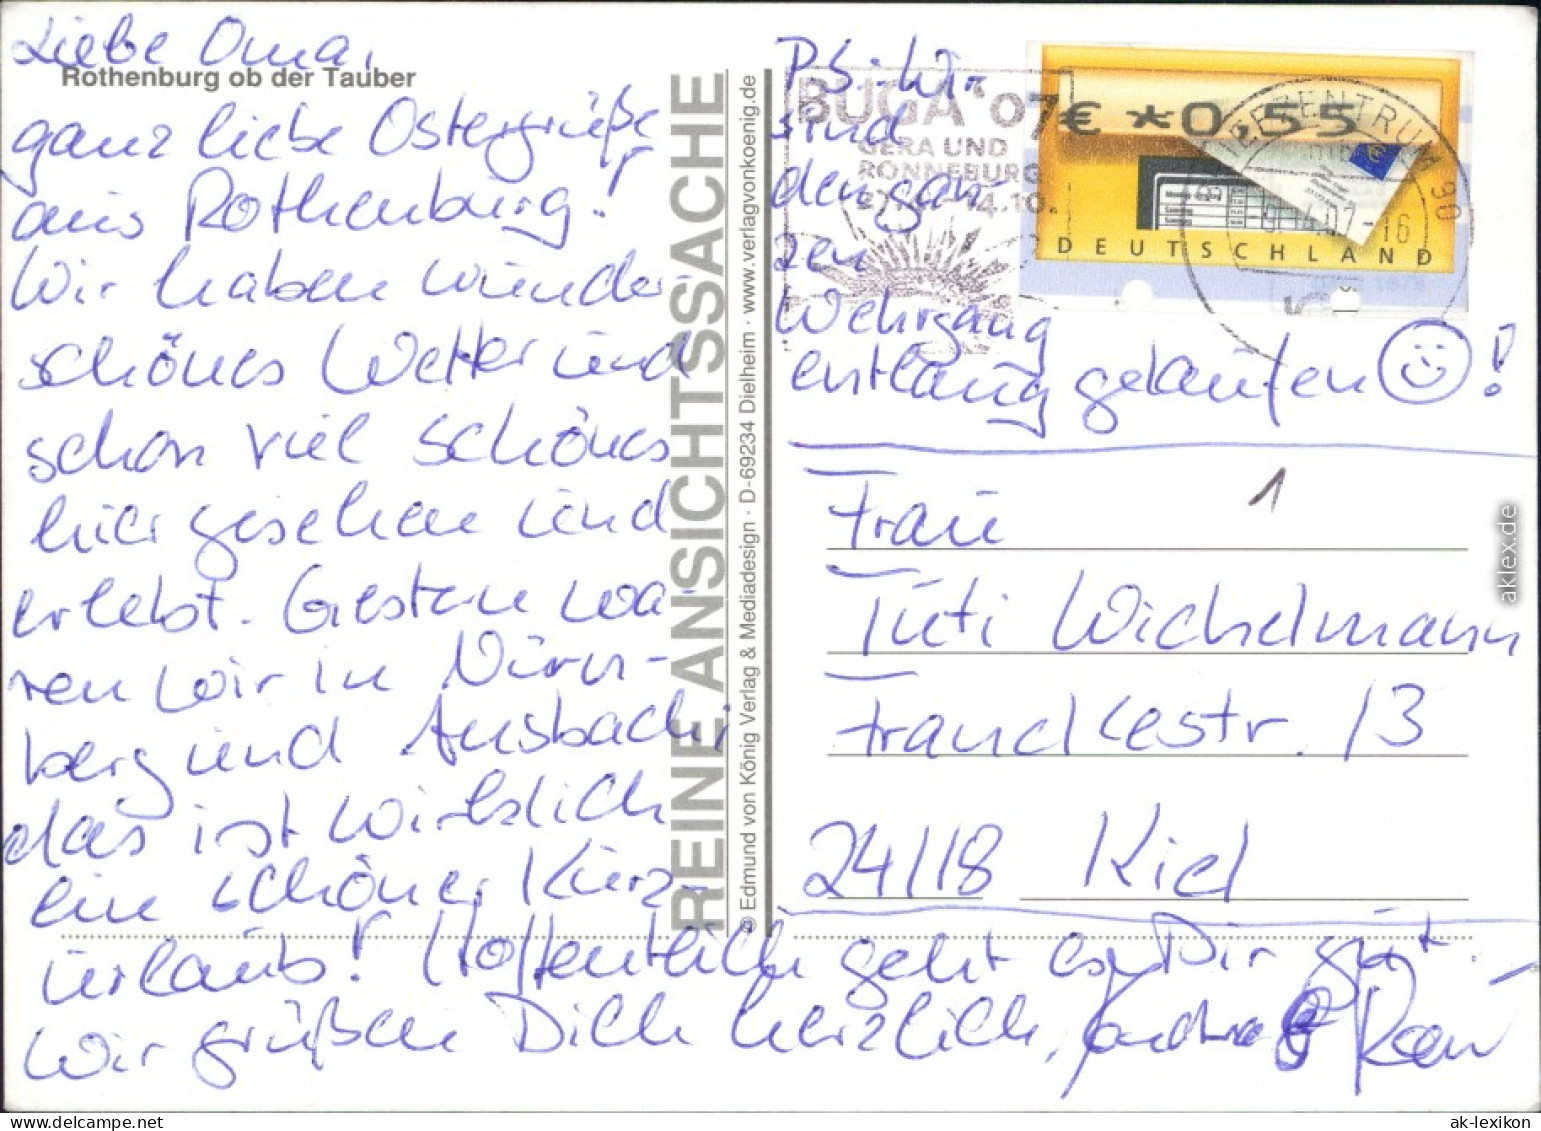 Liebe Oma,
Rothenburg ob der Tauber
ganz liebe Ostergrüße
aus Rothenburg!
Wir haben wunder-
schönes Wetter und
schon viel schönes
hier gesehen und
erlebt. Gestern wa-
ren wir in Nürn-
berg und Ansbach,
das ist wirklich
ein schöner Kurz-
urlaub! Hoffentlich geht es Dir gut.
Wir grüßen Dich herzlich,
REINE ANSICHTSSACHE
© Edmund von König Verlag & Mediadesign · D-69234 Dielheim · www.verlagvonkoenig.de
P.S.: Wir
sind
den gan-
zen
Wehrgang
entlang gelaufen !
BUGA '07
GERA UND
RONNEBURG
€ *0,55
DEUTSCHLAND
BRIEFZENTRUM 90
07-16
1
Frau
Tuti Wichelmann
Franckestr. 13
24118 Kiel
aklex.de
ak-lexikon